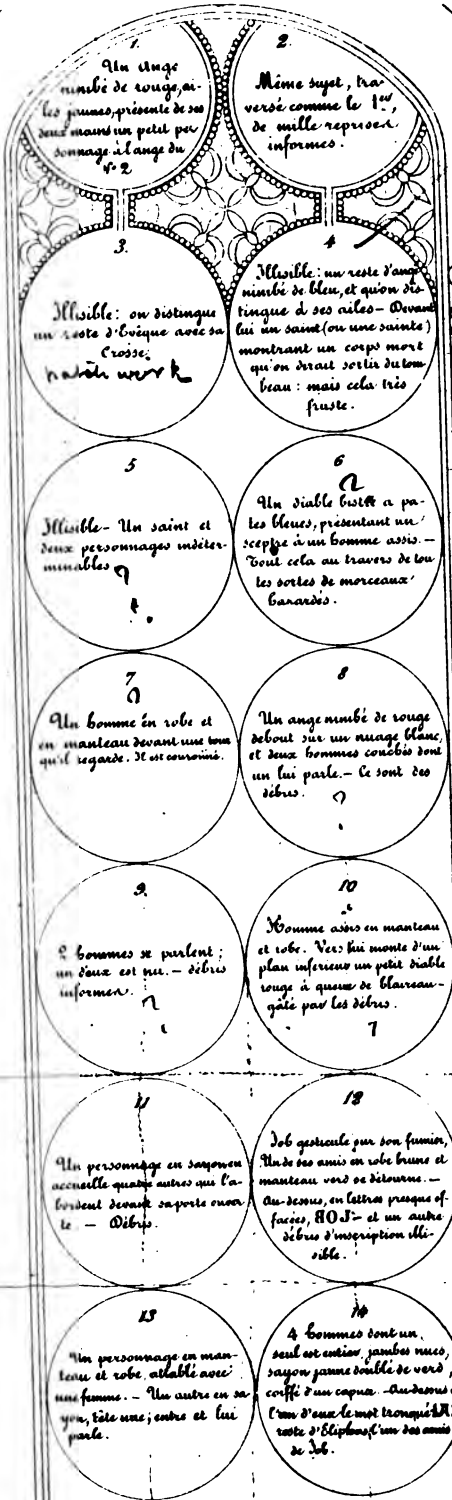 1.
Un Ange
nimbé de rouge, ai-
les jaunes, présente de ses
deux mains un petit per
sonnage à l'ange du
n° 2
2.
Même sujet, tra-
versé comme le 1er,
de mille reprises
informes.
3.
Illisible : on distingue
un reste d'Evêque avec sa
Crosse.
patch work
4
Illisible : un reste d'ange
nimbé de bleu, et qu'on dis-
tingue à ses ailes — Devant
lui un saint (ou une sainte)
montrant un corps mort
qu'on dirait sortir du tom
beau : mais cela très
fruste.
5
Illisible — Un saint et
deux personnages indéter-
minables
?
6
?
Un diable bistre a pa-
tes bleues, présentant un
sceptre à un homme assis. —
Tout cela au travers de tou
tes sortes de morceaux
hasardés.
7
?
Un homme en robe et
en manteau devant une tour
qu'il regarde. Il est couronné.
8
Un ange nimbé de rouge
debout sur un nuage blanc,
et deux hommes couchés dont
un lui parle. — Ce sont des
débris.
?
9.
2 hommes se parlent ;
un d'eux est nu. — débris
informes.
?
10
Homme assis en manteau
et robe. Vers lui monte d'un
plan inferieur un petit diable
rouge à queue de blaireau-
gâté par les débris.
?
11
Un personnage en sayon en
accueille quatre autres que l'a-
bordent devant sa porte ouver
te — Débris.
12
Job gesticule sur son fumier,
Un de ses amis en robe brune et
manteau verd se détourne. —
Au-dessus, en lettres presque ef-
facées, BOJ — et un autre
débris d'inscription illi-
sible.
13
Un personnage en man-
teau et robe, attablé avec
une femme. — Un autre en sa
yon, tête nue, entre et lui
parle.
14
4 hommes dont un
seul est entier, jambes nues,
sayon jaune doublé de verd,
coiffé d'un capuz. — Au-dessus
l'un d'eux le mot tronqué
reste d'Eliphas, l'un des amis
de Job.